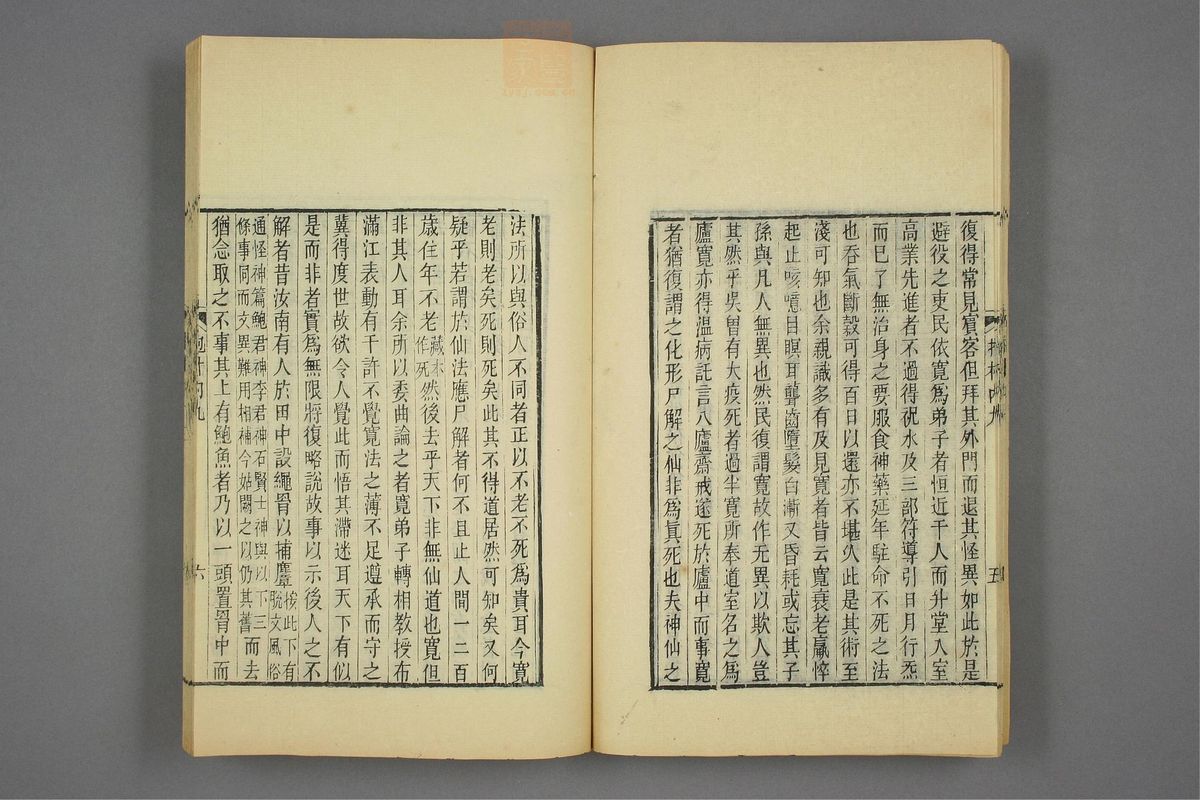 復得常見賓客但拜其外門而退其怪異如此於是
避役之吏民依寬爲弟子者恒近千人而升堂入室
高業先進者不過得祝水及三部符導引日月行炁
而已了無治身之要服食神藥延年駐命不死之法
也吞氣斷穀可得百日以還亦不堪久此是其術至
淺可知也余親識多有及見寬者皆云寬衰老羸悴
起止咳噫目瞑耳聾齒墮髮白漸又昏耗或忘其子
孫與凡人無異也然民復謂寬故作无異以欺人豈
其然乎吳曾有大疫死者過半寬所奉道室名之爲
廬寬亦得溫病託言入廬齋戒遂死於廬中而事寬
者猶復謂之化形尸解之仙非爲眞死也夫神仙之
五
法所以與俗人不同者正以不老不死爲貴耳今寬
老則老矣死則死矣此其不得道居然可知矣又何
疑乎若謂於仙法應尸解者何不且止人間一二百
歲住年不老藏本作死然後去乎天下非無仙道也寬但
非其人耳余所以委曲論之者寛弟子轉相敎授布
滿江表動有千許不覺寬法之薄不足遵承而守之
冀得度世故欲令人覺此而悟其滯迷耳天下有似
是而非者實爲無限將復略說故事以示後人之不
解者昔汝南有人於田中設繩罥以捕麞按此下有脫文風俗
通怪神篇鮑君神李君神石賢士神與以下三條事同而文異難用相補今姑闕之以仍其舊而去
猶念取之不事其上有鮑魚者乃以一頭置罥中而
六